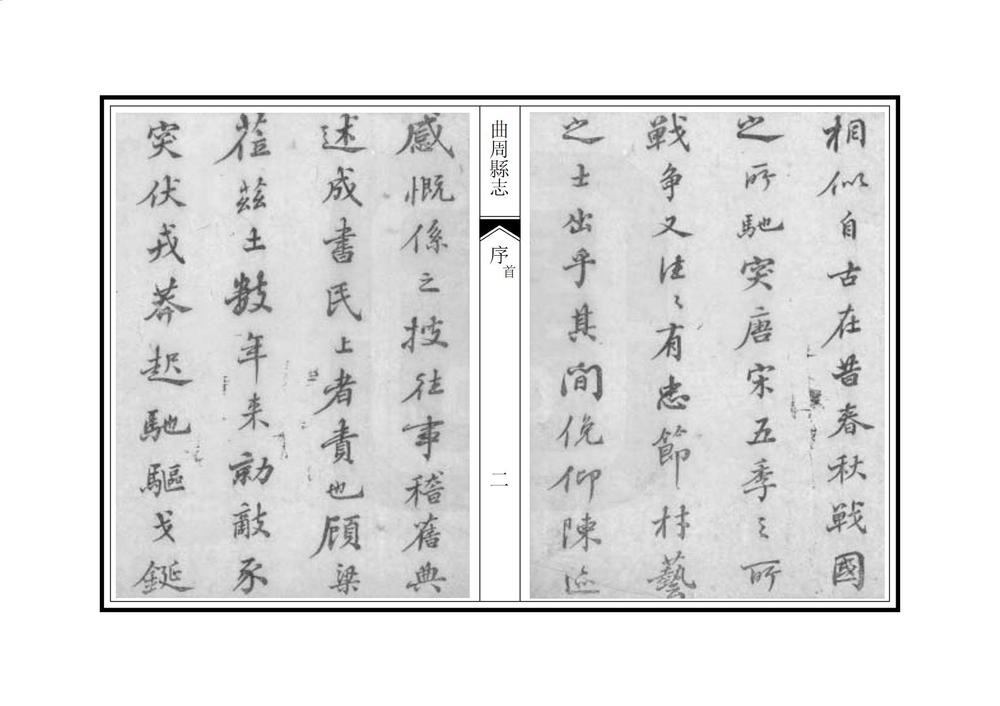 相似自古在昔春秋戰國
之所馳突唐宋五季〻所
戰争又往〻有忠節材藝
之士出乎其間俛仰陳迹
曲周縣志
序首
二
感慨係之披往事稽舊典
述成書民上者責也顧梁
蒞茲土數年来勍敵豕
突伏戎莽起馳驅戈鋋